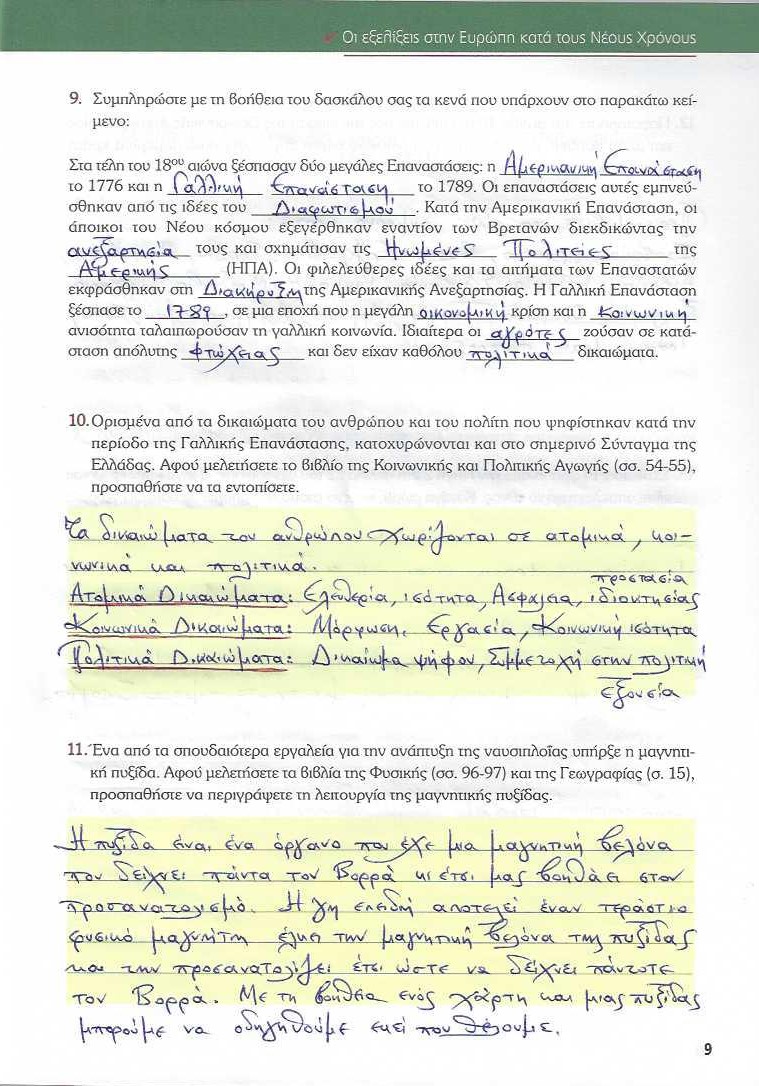 ✓ Οι εξελίξεις στην Ευρώπη κατά τους Νέους Χρόνους
9. Συμπληρώστε με τη βοήθεια του δασκάλου σας τα κενά που υπάρχουν στο παρακάτω κεί-
μενο:
Στα τέλη του 18ου αιώνα ξέσπασαν δύο μεγάλες Επαναστάσεις: η Αμερικανική Επανάσταση
το 1776 και η Γαλλική Επανάσταση το 1789. Οι επαναστάσεις αυτές εμπνεύ-
σθηκαν από τις ιδέες του Διαφωτισμού. Κατά την Αμερικανική Επανάσταση, οι
άποικοι του Νέου κόσμου εξεγέρθηκαν εναντίον των Βρετανών διεκδικώντας την
ανεξαρτησία τους και σχημάτισαν τις Ηνωμένες Πολιτείες της
Αμερικής (ΗΠΑ). Οι φιλελεύθερες ιδέες και τα αιτήματα των Επαναστατών
εκφράσθηκαν στη Διακήρυξη της Αμερικανικής Ανεξαρτησίας. Η Γαλλική Επανάσταση
ξέσπασε το 1789, σε μια εποχή που η μεγάλη οικονομική κρίση και η Κοινωνική
ανισότητα ταλαιπωρούσαν τη γαλλική κοινωνία. Ιδιαίτερα οι αγρότες ζούσαν σε κατά-
σταση απόλυτης φτώχειας και δεν είχαν καθόλου πολιτικά δικαιώματα.
10. Ορισμένα από τα δικαιώματα του ανθρώπου και του πολίτη που ψηφίστηκαν κατά την
περίοδο της Γαλλικής Επανάστασης, κατοχυρώνονται και στο σημερινό Σύνταγμα της
Ελλάδας. Αφού μελετήσετε το βιβλίο της Κοινωνικής και Πολιτικής Αγωγής (σσ. 54-55),
προσπαθήστε να τα εντοπίσετε.
Τα δικαιώματα του ανθρώπου χωρίζονται σε ατομικά, κοι-
νωνικά και πολιτικά.
προστασία
Ατομικά Δικαιώματα: Ελευθερία, ισότητα, Ασφάλεια, ιδιοκτησίας
Κοινωνικά Δικαιώματα: Μόρφωση, Εργασία, Κοινωνική ισότητα
Πολιτικά Δικαιώματα: Δικαίωμα ψήφου, Συμμετοχή στην πολιτική
εξουσία
11. Ένα από τα σπουδαιότερα εργαλεία για την ανάπτυξη της ναυσιπλοΐας υπήρξε η μαγνητι-
κή πυξίδα. Αφού μελετήσετε τα βιβλία της Φυσικής (σσ. 96-97) και της Γεωγραφίας (σ. 15),
προσπαθήστε να περιγράψετε τη λειτουργία της μαγνητικής πυξίδας.
Η πυξίδα είναι, ένα όργανο που έχει μια μαγνητική βελόνα
που δείχνει πάντα τον Βορρά κι έτσι μας βοηθάει στον
προσανατολισμό. Η γη επειδή αποτελεί έναν τεράστιο
φυσικό μαγνήτη έλκει την μαγνητική βελόνα της πυξίδας
και την προσανατολίζει έτσι ώστε να δείχνει πάντοτε
τον Βορρά. Με τη βοήθεια ενός χάρτη και μιας πυξίδας
μπορούμε να οδηγηθούμε εκεί που θέλουμε.
9